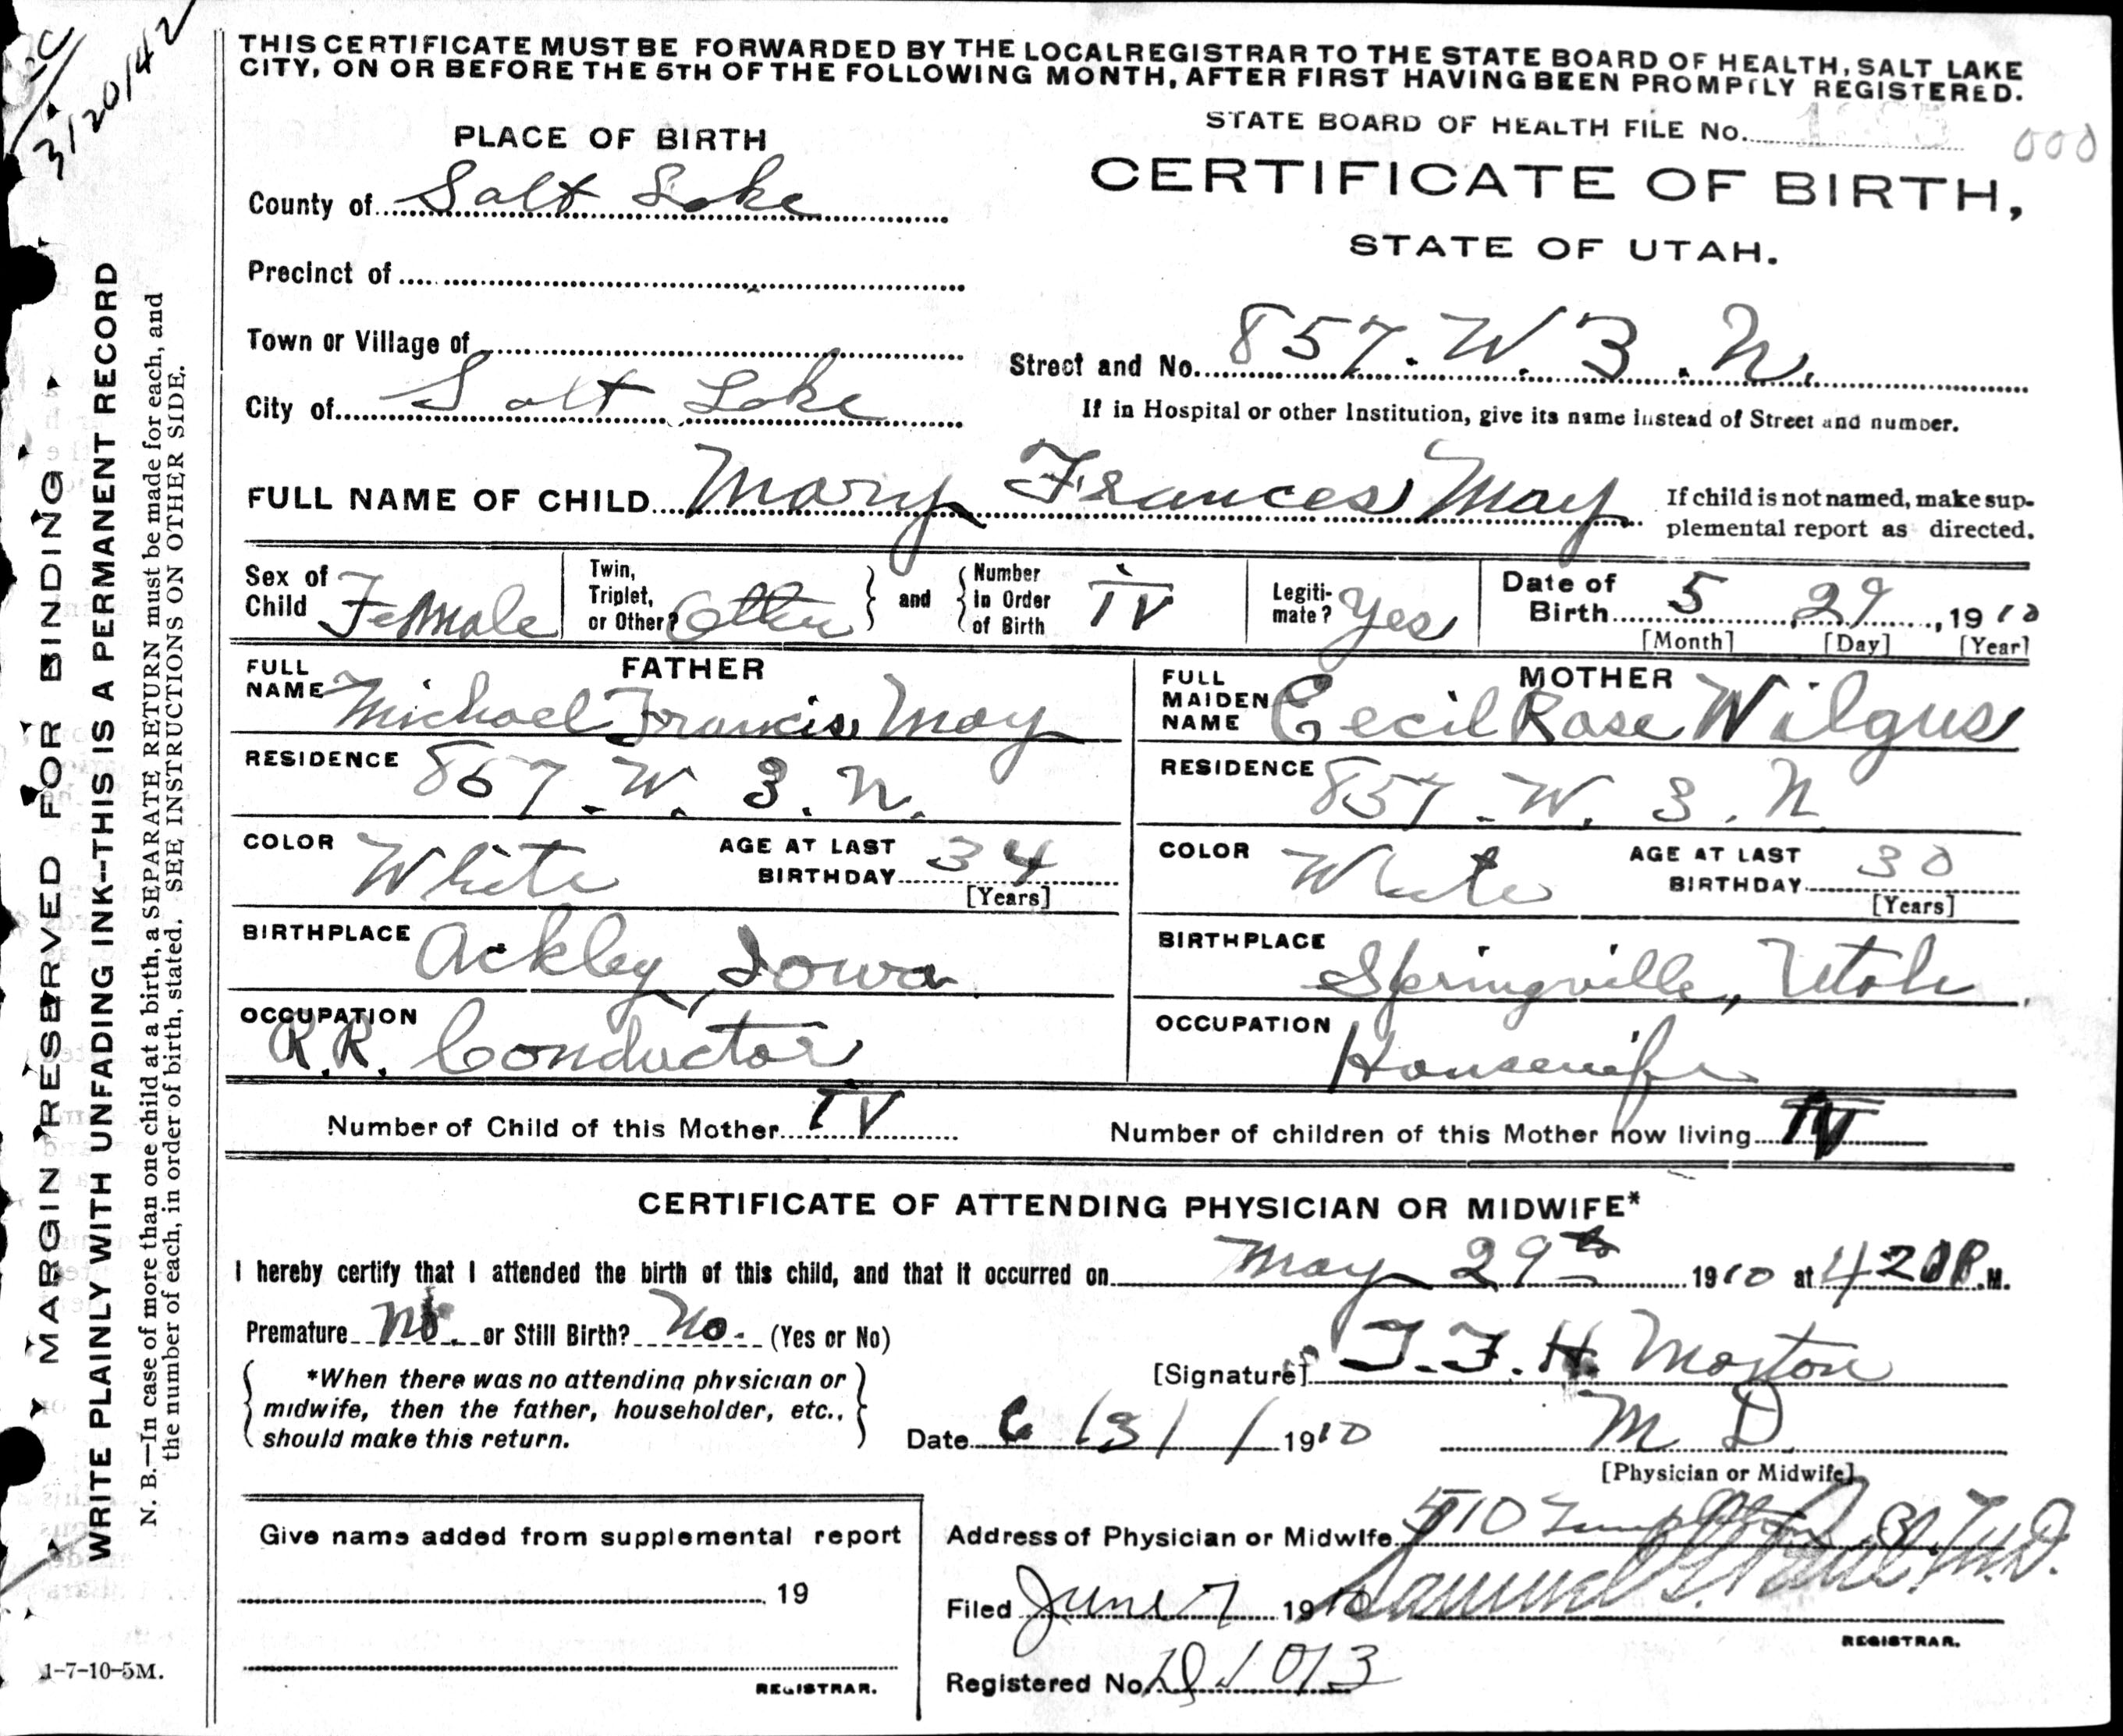 3/20/42
THIS CERTIFICATE MUST BE FORWARDED BY THE LOCAL REGISTRAR TO THE STATE BOARD OF HEALTH, SALT LAKE
CITY, ON OR BEFORE THE 5TH OF THE FOLLOWING MONTH, AFTER FIRST HAVING BEEN PROMPTLY REGISTERED.
STATE BOARD OF HEALTH FILE No. 000
PLACE OF BIRTH
CERTIFICATE OF BIRTH,
STATE OF UTAH.
County of Salt Lake
Precinct of
Town or Village of
Street and No. 857. W. 3. N.
City of Salt Lake
If in Hospital or other Institution, give its name instead of Street and number.
FULL NAME OF CHILD Mary Frances May
If child is not named, make sup-
plemental report as directed.
Sex of Child Female
Twin, Triplet, or Other? Other and Number in Order of Birth IV
Legiti-mate? Yes
Date of Birth 5 29, 1910
[Month] [Day] [Year]
FATHER
FULL NAME Michael Francis May
RESIDENCE 857. W. 3. N.
COLOR White AGE AT LAST BIRTHDAY 34
[Years]
BIRTHPLACE Ackley, Iowa
OCCUPATION R.R. Conductor
MOTHER
FULL MAIDEN NAME Cecil Rose Wilgus
RESIDENCE 857. W. 3. N
COLOR White AGE AT LAST BIRTHDAY 30
[Years]
BIRTHPLACE Springville, Utah
OCCUPATION Housewife
Number of Child of this Mother IV
Number of children of this Mother now living IV
CERTIFICATE OF ATTENDING PHYSICIAN OR MIDWIFE*
I hereby certify that I attended the birth of this child, and that it occurred on May 29th 1910 at 420 P.M.
Premature No. or Still Birth? No. (Yes or No)
*When there was no attending physician or
midwife, then the father, householder, etc.,
should make this return.
[Signature] T. F. H. Morton
Date 6/3/1910
M D
[Physician or Midwife]
Give name added from supplemental report
19
REGISTRAR.
Address of Physician or Midwife 510
Filed June 7 1910 Samuel G. Paul. M.D.
REGISTRAR.
Registered No. 1013
1-7-10-5M.
MARGIN RESERVED FOR BINDING
WRITE PLAINLY WITH UNFADING INK--THIS IS A PERMANENT RECORD
N. B.—In case of more than one child at a birth, a SEPARATE RETURN must be made for each, and
the number of each, in order of birth, stated. SEE INSTRUCTIONS ON OTHER SIDE.